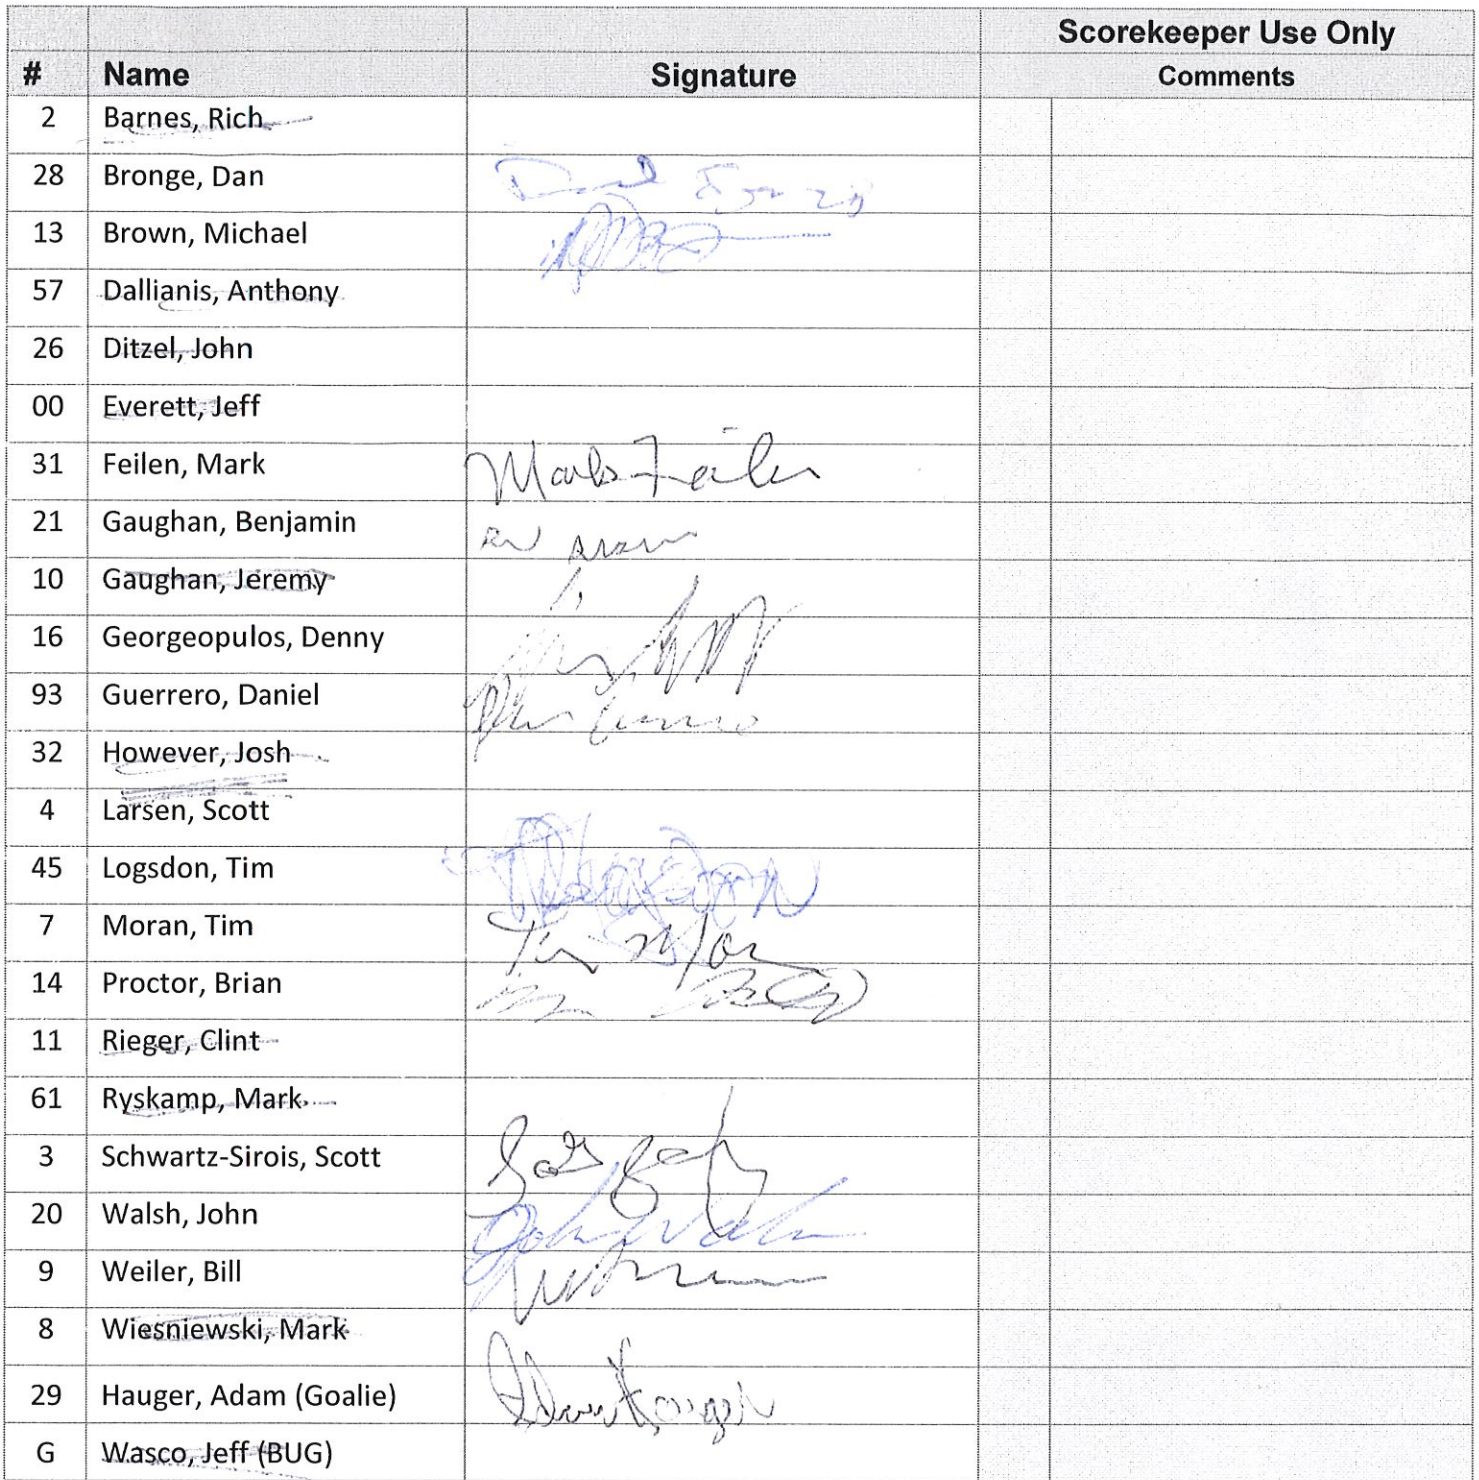 Scorekeeper Use Only
# Name Signature Comments
2 Barnes, Rich
28 Bronge, Dan
13 Brown, Michael
57 Dallianis, Anthony
26 Ditzel, John
00 Everett, Jeff
31 Feilen, Mark Mark Feilen
21 Gaughan, Benjamin
10 Gaughan, Jeremy
16 Georgeopulos, Denny
93 Guerrero, Daniel
32 However, Josh
4 Larsen, Scott
45 Logsdon, Tim
7 Moran, Tim Tim Moran
14 Proctor, Brian
11 Rieger, Clint
61 Ryskamp, Mark
3 Schwartz-Sirois, Scott
20 Walsh, John John Walsh
9 Weiler, Bill
8 Wiesniewski, Mark
29 Hauger, Adam (Goalie) Adam Hauger
G Wasco, Jeff (BUG)